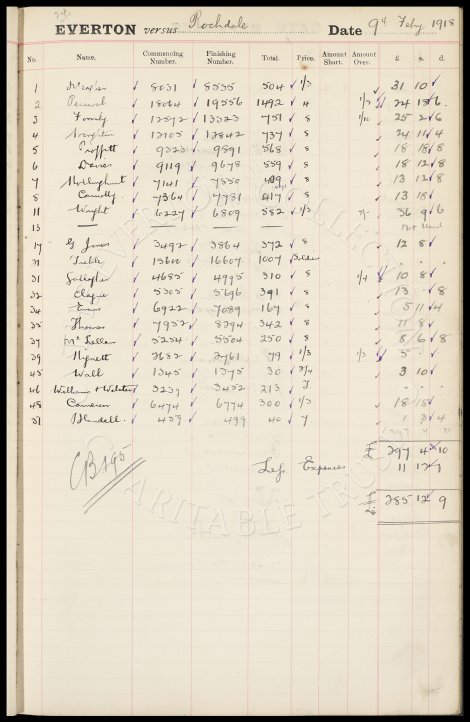 EVERTON versus Rochdale Date 9th Feby 1918
No. Name. Commencing Number. Finishing Number. Total. Price. Amount Short. Amount Over. £ s. d.
1 8031 8535 504 1/3 31 10
2 18064 19556 1492 4 1/2 24 18 6
3 12572 13323 751 8 25 2 6
4 12105 12842 737 8 24 11 4
5 Proffitt 9323 9891 568 8 18 18 8
6 Davies 9119 9678 559 8 18 12 8
7 7141 7550 409 8 13 12 8
8 Connolly 7364 7781 417 8 13 18
11 Wright 6227 6809 582 1/3 36 9 6
13 — — Not Used
17 G Jones 3492 3864 372 8 12 8
31 Treble 15600 16607 1007
31 Gallagher 4685 4995 310 8 1/4 10 8
32 Clague 5305 5696 391 8 13 8
34 Evans 6922 7089 167 8 5 11 4
35 Thomas 7952 8294 342 8 11 8
37 McLellan 5254 5504 250 8 8 6 8
39 Hignett 2682 2761 79 1/3 1/3 5
45 Wall 1345 1375 30 2/4 3 10
46 Williams & Webster 3239 3452 213
48 Cameron 6474 6774 300 1/3 18 15
51 Blundell 459 499 40 7 1 3 4
297 4 10
£ 297 4 10
CB 195 Less Expenses 11 12 1
£ 285 12 9
EVERTON COLLECTION
CHARITABLE TRUST